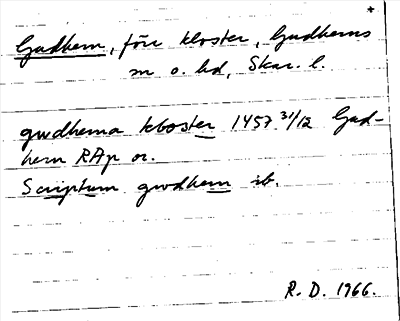 *
Gudhem, förr kloster, Gudhems
sn o. hd, Skar. l.
gwdhema kloster 1457 31/12 Gud-
hem RAp or.
Scriptum gwdhem ib.
R. D. 1966.